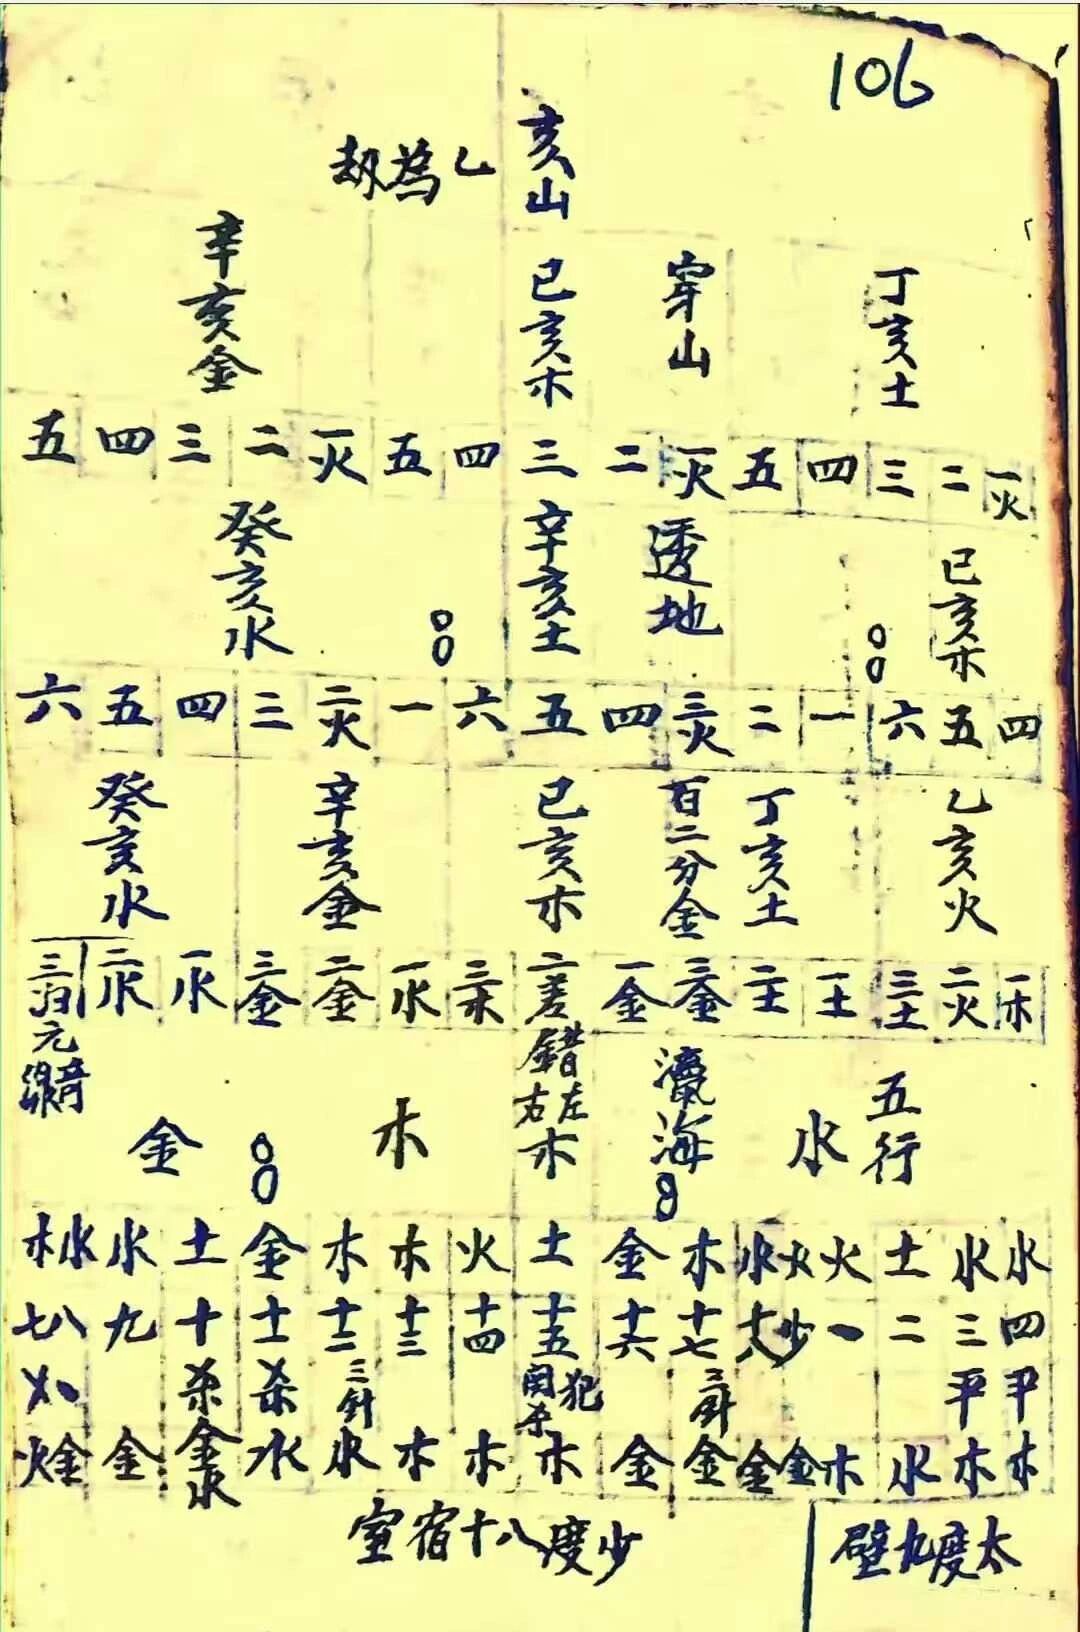 106
亥山
乙為劫
丁亥土
穿山
己亥木
辛亥金
一火 二 三 四 五 一火 二 三 四 五 一火 二 三 四 五
己亥木
透地
辛亥土
癸亥水
四 五 六 一 二 三火 四 五 六 一 二火 三 四 五 六
乙亥火
丁亥土
百二分金
己亥木
辛亥金
癸亥水
一木 二火 三土 一土 二土 三金 一金 二差 三木 一水 二金 三金 一水 二水 三
錯
左右
五行
水
瀛海
木
木
金
水 水 土 火 火 水 木 金 土 火 木 木 金 土 水 水
四 三 二 一 少 十八 十七 十六 十五 十四 十三 十二 十一 十 九 八 七
平 平 三針 犯関杀 三針 杀 杀
木 木 水 木 金 金 金 金 木 木 木 水 水 金水 金 金 火
壁九度太
室宿十八度少